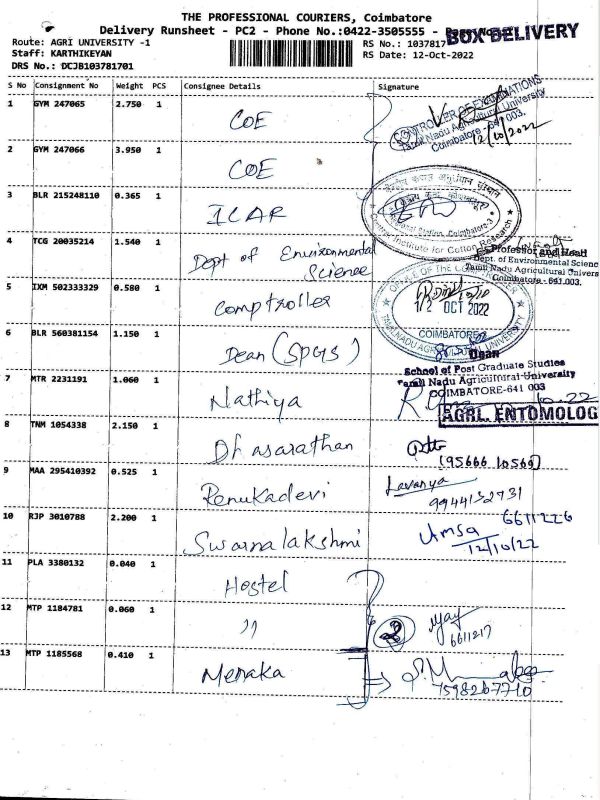 THE PROFESSIONAL COURIERS, Coimbatore
Delivery Runsheet - PC2 - Phone No.:0422-3505555 -
BOX DELIVERY
Route: AGRI UNIVERSITY -1
RS No.: 1037817
Staff: KARTHIKEYAN
RS Date: 12-Oct-2022
DRS No.: DCJB103781701
S No Consignment No Weight PCS Consignee Details Signature
1 GYM 247065 2.750 1 COE
CONTROLLER OF EXAMINATIONS
Tamil Nadu Agricultural University
Coimbatore - 641 003.
12/10/2022
2 GYM 247066 3.950 1 COE
3 BLR 215248110 0.365 1 ICAR
Central Institute for Cotton Research
Regional Station, Coimbatore-3
4 TCG 20035214 1.540 1 Dept of Environmental Science
Professor and Head
Dept. of Environmental Scienc
Tamil Nadu Agricultural Univers
Coimbatore - 641.003.
5 IXM 502333329 0.580 1 Comptroller
OFFICE OF THE
12 OCT 2022
COIMBATORE
TAMILNADU AGRICULTURAL UNIVERSITY
6 BLR 560381154 1.150 1 Dean (SPGS)
Dean
School of Post Graduate Studies
Tamil Nadu Agricultural University
COIMBATORE-641 003
7 MTR 2231191 1.060 1 Nathiya
AGRL. ENTOMOLOG
8 TNM 1054338 2.150 1 Dhasarathan
(95666 10569)
9 MAA 295410392 0.525 1 Renukadevi
Lavanya
9944132731
10 RJP 3010788 2.200 1 Swarnalakshmi
6611226
12/10/22
11 PLA 3380132 0.040 1 Hostel
12 MTP 1184781 0.060 1 ,,
2
6611217
13 MTP 1185568 0.410 1 Menaka
7598267710